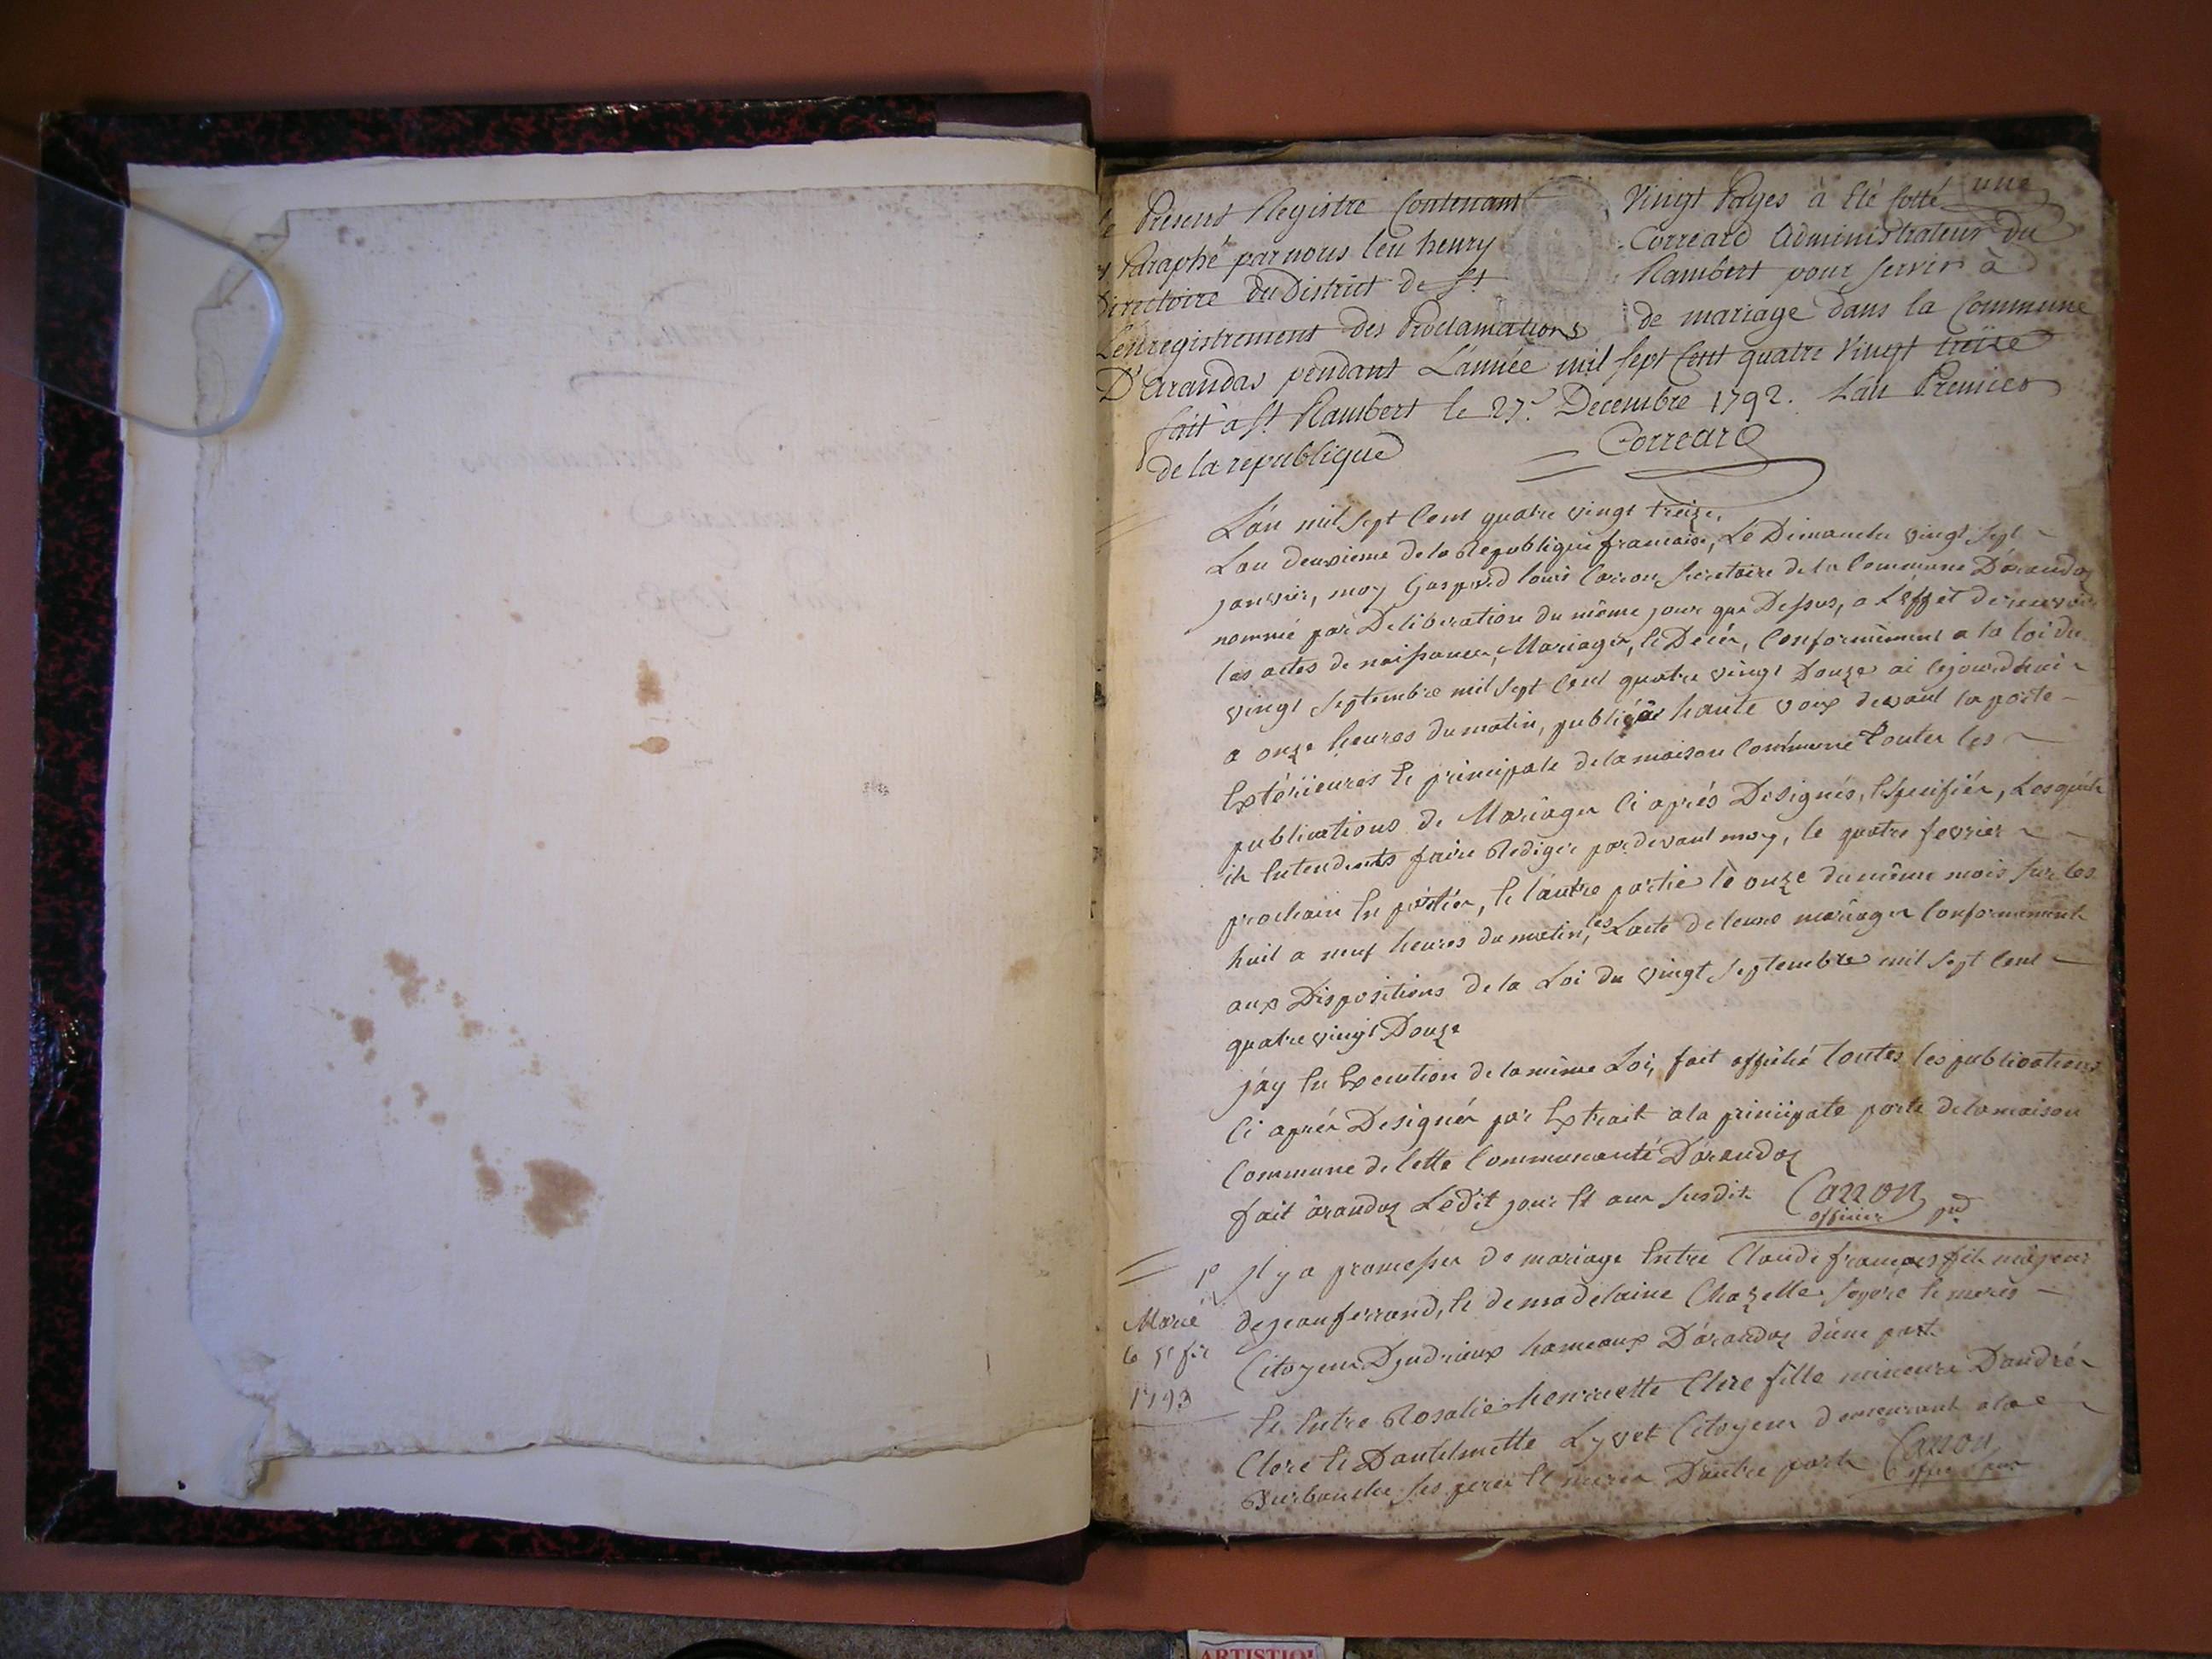 une
Le Présent Registre Contenant Vingt Pages à Eté Cotté
et Paraphé par nous Leu henry Correard Administrateur du
Directoire du District de St Rambert pour servir à
L'enregistrement des Proclamations de mariage dans la Commune
D'arandas pendant L'année mil sept Cent quatre Vingt treize
fait à St Rambert le 27 Decembre 1792. L'an Premier
de la republique Correard
L'an mil sept Cent quatre vingt treize,
L'an deuxieme de la Republique francaise, Le Dimanche vingt sept
janvier, moy Gaspard louis Carron secretaire de la Commune D'arandas
nommé par Deliberation du même jour que Dessus, a L'effet de recevoir
les actes de naissances, Mariages, et Décés, Conformément a la loi du
vingt septembre mil sept Cent quatre vingt Douze ai cejourdhui
a onze heures du matin, publié à haute voix devant la porte
Extérieures et principale de la maison Commune toutes les
publications de Mariages Ci aprés Designés, et spécifiés, Lesquels
ils Entendents faire Rediger pardevant moy, le quatre fevrier
prochain En parties, et l'autre partie le onze du même mois sur les
huit a neuf heures du matin, les L'acte de leurs mariages Conformément
aux Dispositions de la Loi du vingt septembre mil sept Cent
quatre vingt Douze
j'ay En Execution de la même Loi, fait affiché toutes les publications
Ci aprés Designés par Extrait a la principale porte de la maison
Commune de Cette Communauté D'arandas
fait à arandas Ledit jour et an susdit Carron
officier pud
1º Il y a promesses de mariage Entre Claude francois fils majeur
Marié
de jean ferrand, et de madelaine Chazelle ses pere et meres
le 5e fer
Citoyens D'indrieux hameaux D'arandas d'une part
1793
Et Entre Rosalie henriette Clerc fille mineure D'andré
Clerc et D'anthelmette Lyvet Citoyens demeurant a la
Burbanche ses peres et meres D'autre part Carron
offier pud